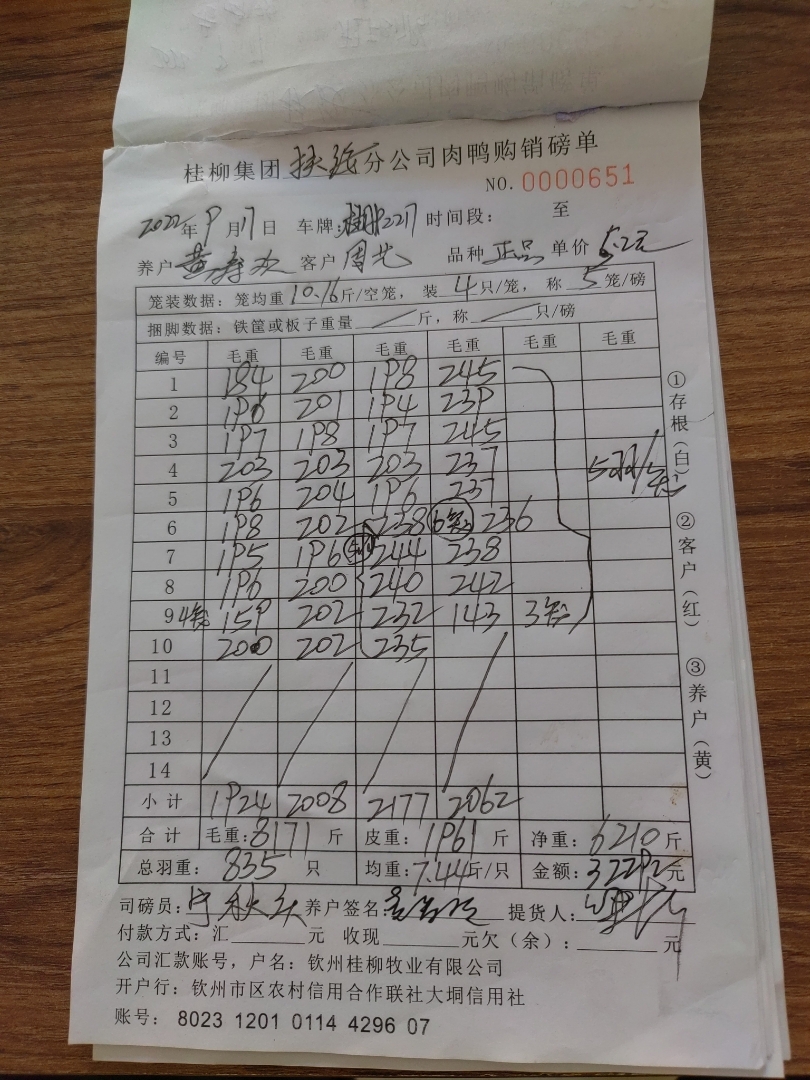 桂柳集团 扶绥 分公司肉鸭购销磅单
NO. 0000651
2022年 9 月 17 日 车牌: 桂 2217 时间段: 至
养户 黄寿 客户 周 品种 正品 单价 5.2元
笼装数据: 笼均重 10.16 斤/空笼, 装 4 只/笼, 称 5 笼/磅
捆脚数据: 铁筐或板子重量 斤, 称 只/磅
编号 毛重 毛重 毛重 毛重 毛重 毛重
1 184 200 198 245
2 196 201 194 239
3 197 198 197 245
4 203 203 203 237 5羽/笼
5 196 204 196 237
6 198 202 238 6笼 236
7 195 196 244 238
8 196 200 240 242
9 4笼 159 202 232 143 3笼
10 200 202 235
11
12
13
14
小计 1924 2008 2177 2062
合计 毛重: 8171 斤 皮重: 1961 斤 净重: 6210 斤
总羽重: 835 只 均重: 7.44斤/只 金额: 32292元
司磅员: 宁秋 养户签名: 提货人:
付款方式: 汇 元 收现 元欠(余): 元
公司汇款账号, 户名: 钦州桂柳牧业有限公司
开户行: 钦州市区农村信用合作联社大垌信用社
账号: 8023 1201 0114 4296 07
①存根(白)
②客户(红)
③养户(黄)